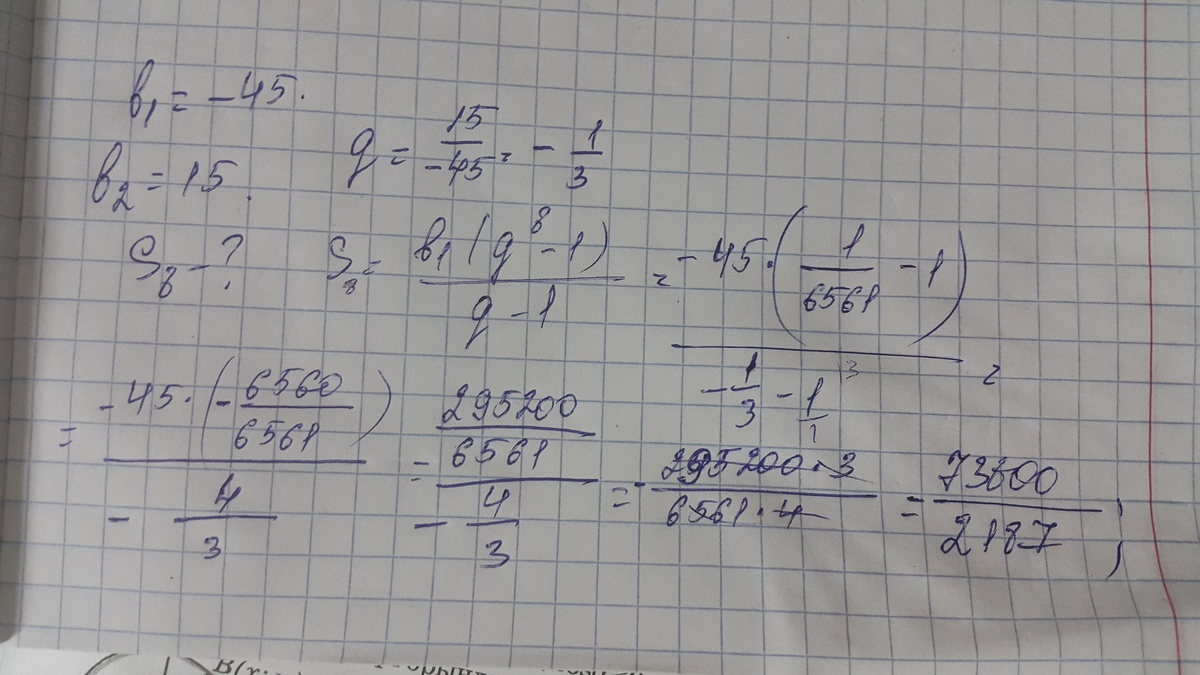 b₁ = -45.
b₂ = 15. q = 15/-45 = - 1/3
S₈ - ? S₈ = b₁(q⁸ - 1)/(q - 1) = -45 · (1/6561 - 1)/(- 1/3 - 1/1) =
= -45 · (- 6560/6561)/(- 4/3) = (295200/6561)/(- 4/3) = - 295200 · 3/(6561 · 4) = 73800/2187;